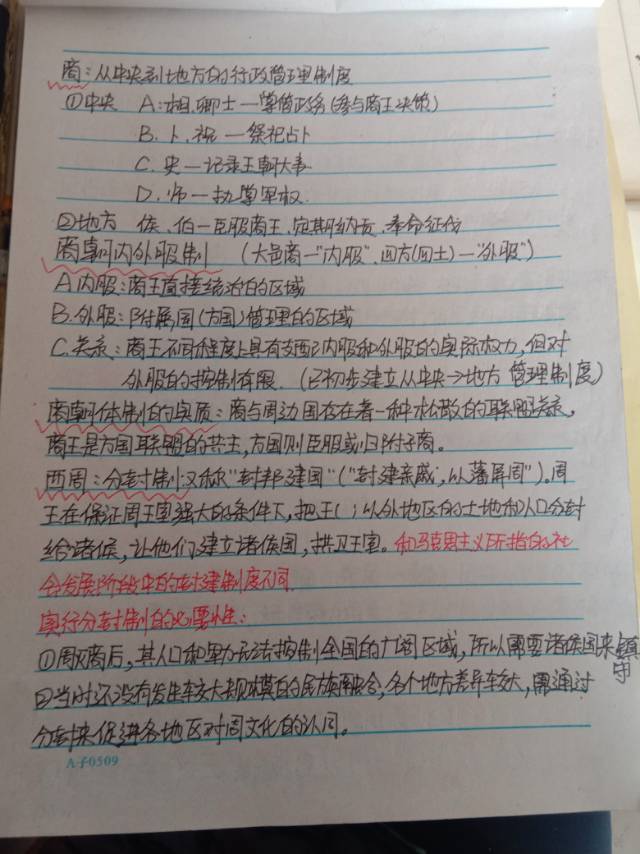 商：从中央到地方的行政管理制度
①中央 A：相、卿士—掌管政务（参与商王决策）
B. 卜、祝—祭祀占卜
C. 史—记录王朝大事
D. 师—执掌军权.
②地方 侯、伯—臣服商王，定期纳贡、奉命征伐
商朝内外服制 （大邑商—“内服”，四方(四土)—“外服”）
A 内服：商王直接统治的区域
B. 外服：附属国（方国）管理的区域
C. 关系：商王不同程度上具有支配内服和外服的实际权力，但对
外服的控制有限.（已初步建立从中央→地方 管理制度）
商朝体制的实质：商与周边国存在着一种松散的联盟关系，
商王是方国联盟的共主，方国则臣服或归附于商。
西周：分封制 又称“封邦建国”（“封建亲戚，以藩屏周”）。周
王在保证周王室强大的条件下，把王( )以外地区的土地和人口分封
给诸侯，让他们建立诸侯国，拱卫王室。和马克思主义所指的社
会发展阶段中的封建制度不同
实行分封制的必要性：
①周灭商后，其人口和军力无法控制全国的广阔区域，所以需要诸侯国来镇守
②当时还没有发生较大规模的民族融合，各个地方差异较大，需通过
分封来促进各地区对周文化的认同。
A子0509